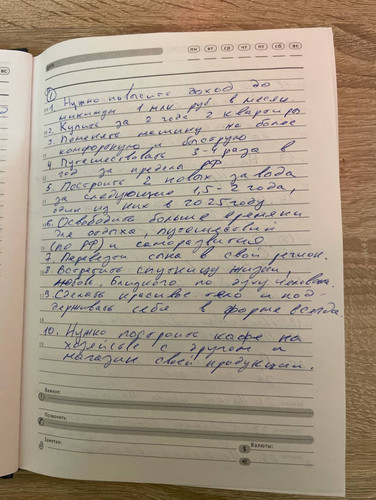 пн вт ср чт пт сб вс
вс
1
1. Нужно повысить доход до
минимум 1 млн руб в месяц
2. Купить за 2 года 2 квартиры
3. Поменять машину на более
комфортную и быструю
4. Путешествовать 3-4 раза в
год за пределы РФ
5. Построить 2 новых завода
за следующие 1,5-2 года,
один из них в 2025 году.
6. Освободить больше времени
для отдыха, путешествий
(по РФ) и саморазвития.
7. Перевезти сына в свой регион.
8. Встретить спутницу жизни,
любовь, близкого по духу человека
9. Сделать красивое тело и под
держивать себя в форме всегда
10. Нужно построить кафе на
хозяйстве с другом и
магазин своей продукции.
Важно:
Позвонить:
Заметки:
Валюты:
$